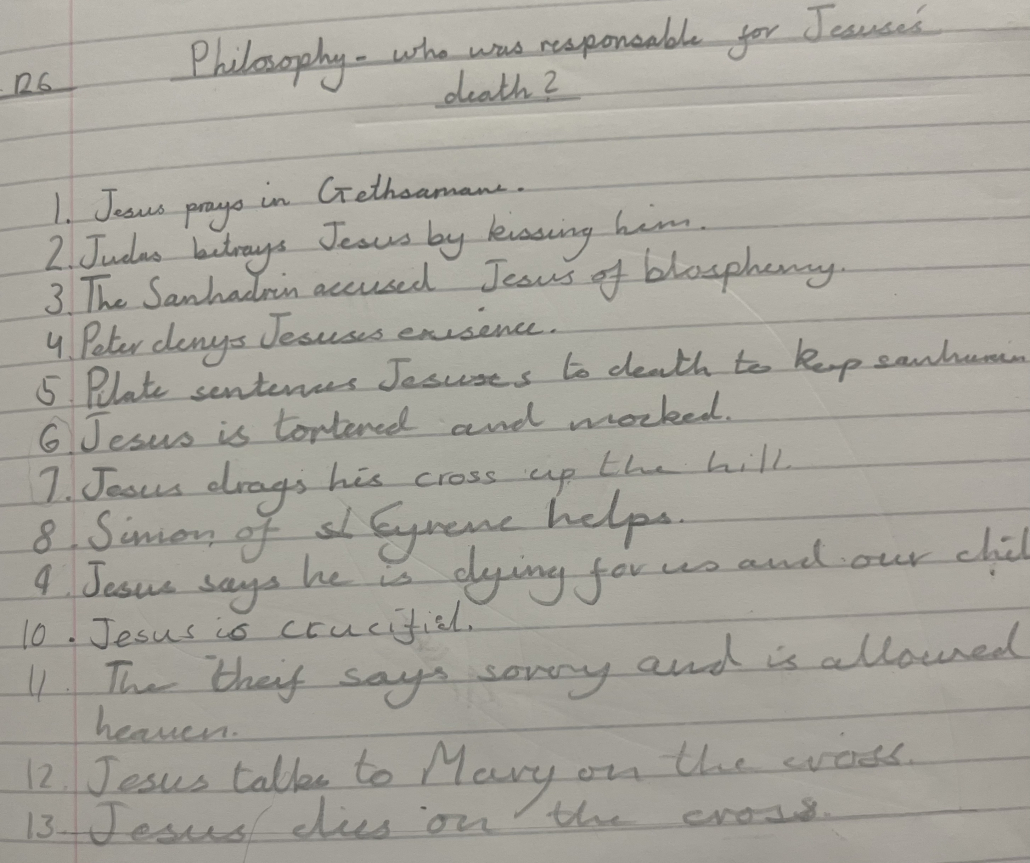 Philosophy - who was responsable for Jesuses
126
death?
1. Jesus prays in Gethsamane.
2. Judas betrays Jesus by kissing him.
3. The Sanhadrin accused Jesus of blosphemy.
4. Peter denys Jesuses exisence.
5. Pilate sentences Jesuses to death to keep
6. Jesus is tortered and mocked.
7. Jesus drags his cross up the hill.
8. Simion of Cyrene helps.
9. Jesus says he is dying for us and our chil
10. Jesus is crucifiel.
11. The theif says sorry and is allowed
heaven.
12. Jesus talks to Mary on the cross.
13. Jesus dies on the cross.